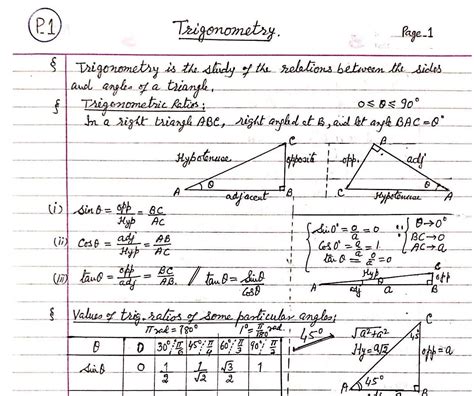 P.1
Trigonometry.
Page-1
§ Trigonometry is the study of the relations between the sides
and angles of a triangle.
§ Trigonometric Ratios: 0 ≤ θ ≤ 90°
In a right triangle ABC, right angled at B, and let angle BAC = θ°
C
Hypotenuse
opposit
A θ
adjacent
B
B
opp.
adj
C
Hypotenuse
θ A
(i) sinθ = opp/Hyp = BC/AC
(ii) Cosθ = adj/Hyp = AB/AC
(iii) tanθ = opp/adj = BC/AB. // tanθ = Sinθ/Cosθ
Sin0° = 0/a = 0
Cos0° = a/a = 1
tan0° = 0/a = 0
θ→0°
BC→0
AC→a
Hyp
C
opp
A
adj
a
B
§ Values of trig. ratios of some particular angles;
π rad = 180° 1° = π/180 rad.
θ 0 30°; π/6 45°; π/4 60°; π/3 90°; π/2
Sinθ 0 1/2 1/√2 √3/2 1
45°
√a²+a²
Hy = a√2
C
45
opp = a
A 45°
B